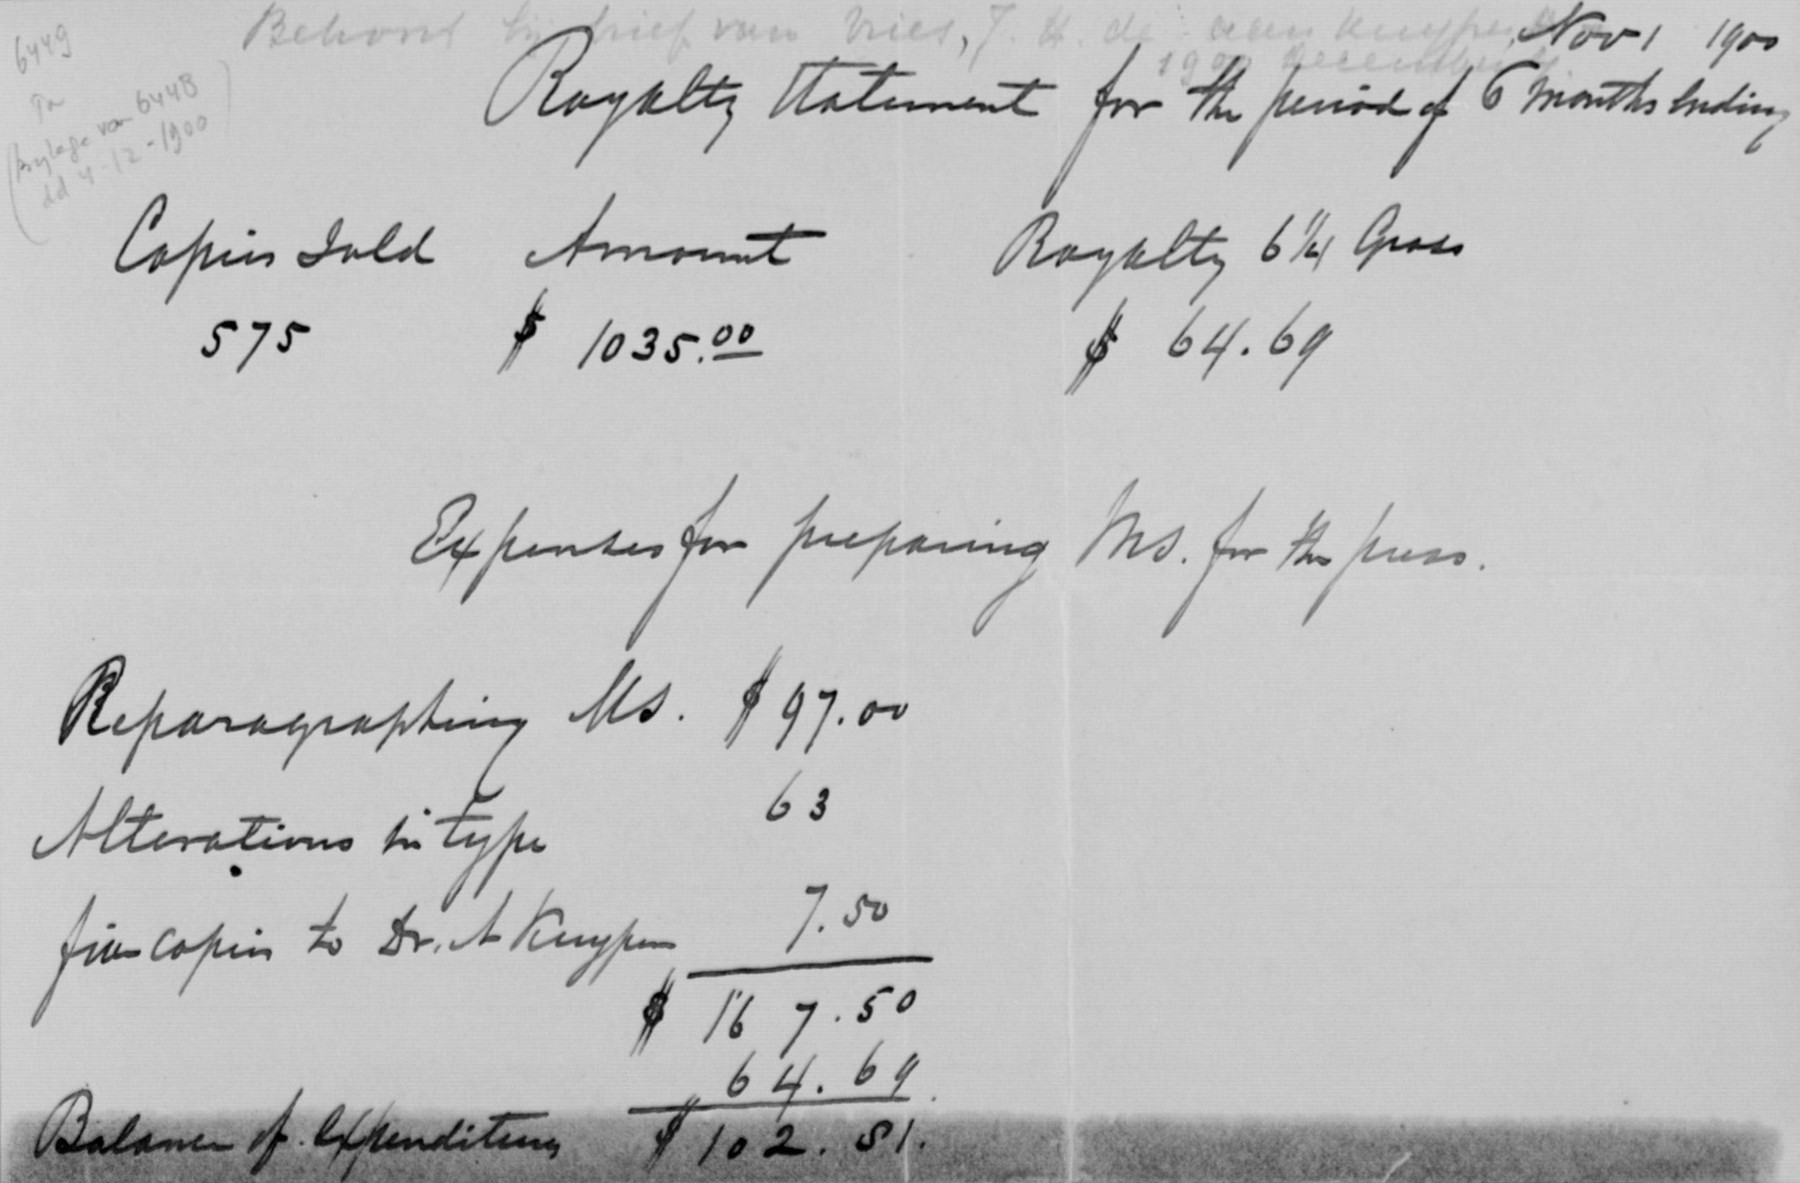 6449
Behoort bij brief van Vries, J. H. de aan Kuyper
1900 december
(Bijlage van 6448
dd 4-12-1900)
Nov 1 1900
Royalty Statement for the period of 6 months Ending
Copies Sold Amount Royalty 6 1/4 Gross
575 $ 1035.00 $ 64.69
Expenses for preparing Ms. for the press.
Reparagraphing Ms. $ 97.00
Alterations in type 63
five copies to Dr. A Kuyper 7.50
$ 167.50
64.69
Balance of Expenditures $ 102.81.